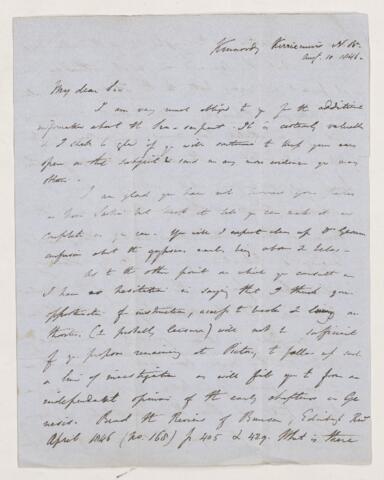 Kinnordy Kirriemuir N.B.
Aug. 10. 1846.
My dear Sir
I am very much obliged to you for the additional
information about the Sea-serpent. It is certainly valuable
& I shall be glad if you will continue to keep your ears
open on this subject & send me any more evidence you may
obtain.
I am glad you have not
as you can. You will I expect clear up Dr Gesner's
confusion about the gypsum early being above 2
As to the other point on which you consult me
I have no hesitation in saying that I think your
opportunities of instruction, access to books & living
authors, (& probably leisure) will not be sufficient
if you propose remaining at Pictou, to follow up such
a line of investigation as will fit you to form an
independent opinion of the early chapters in Ge
nesis. Read the Review of Bunsen, Edinbgh Revw
April 1846 (no. 168) p 405 & 429. What is there